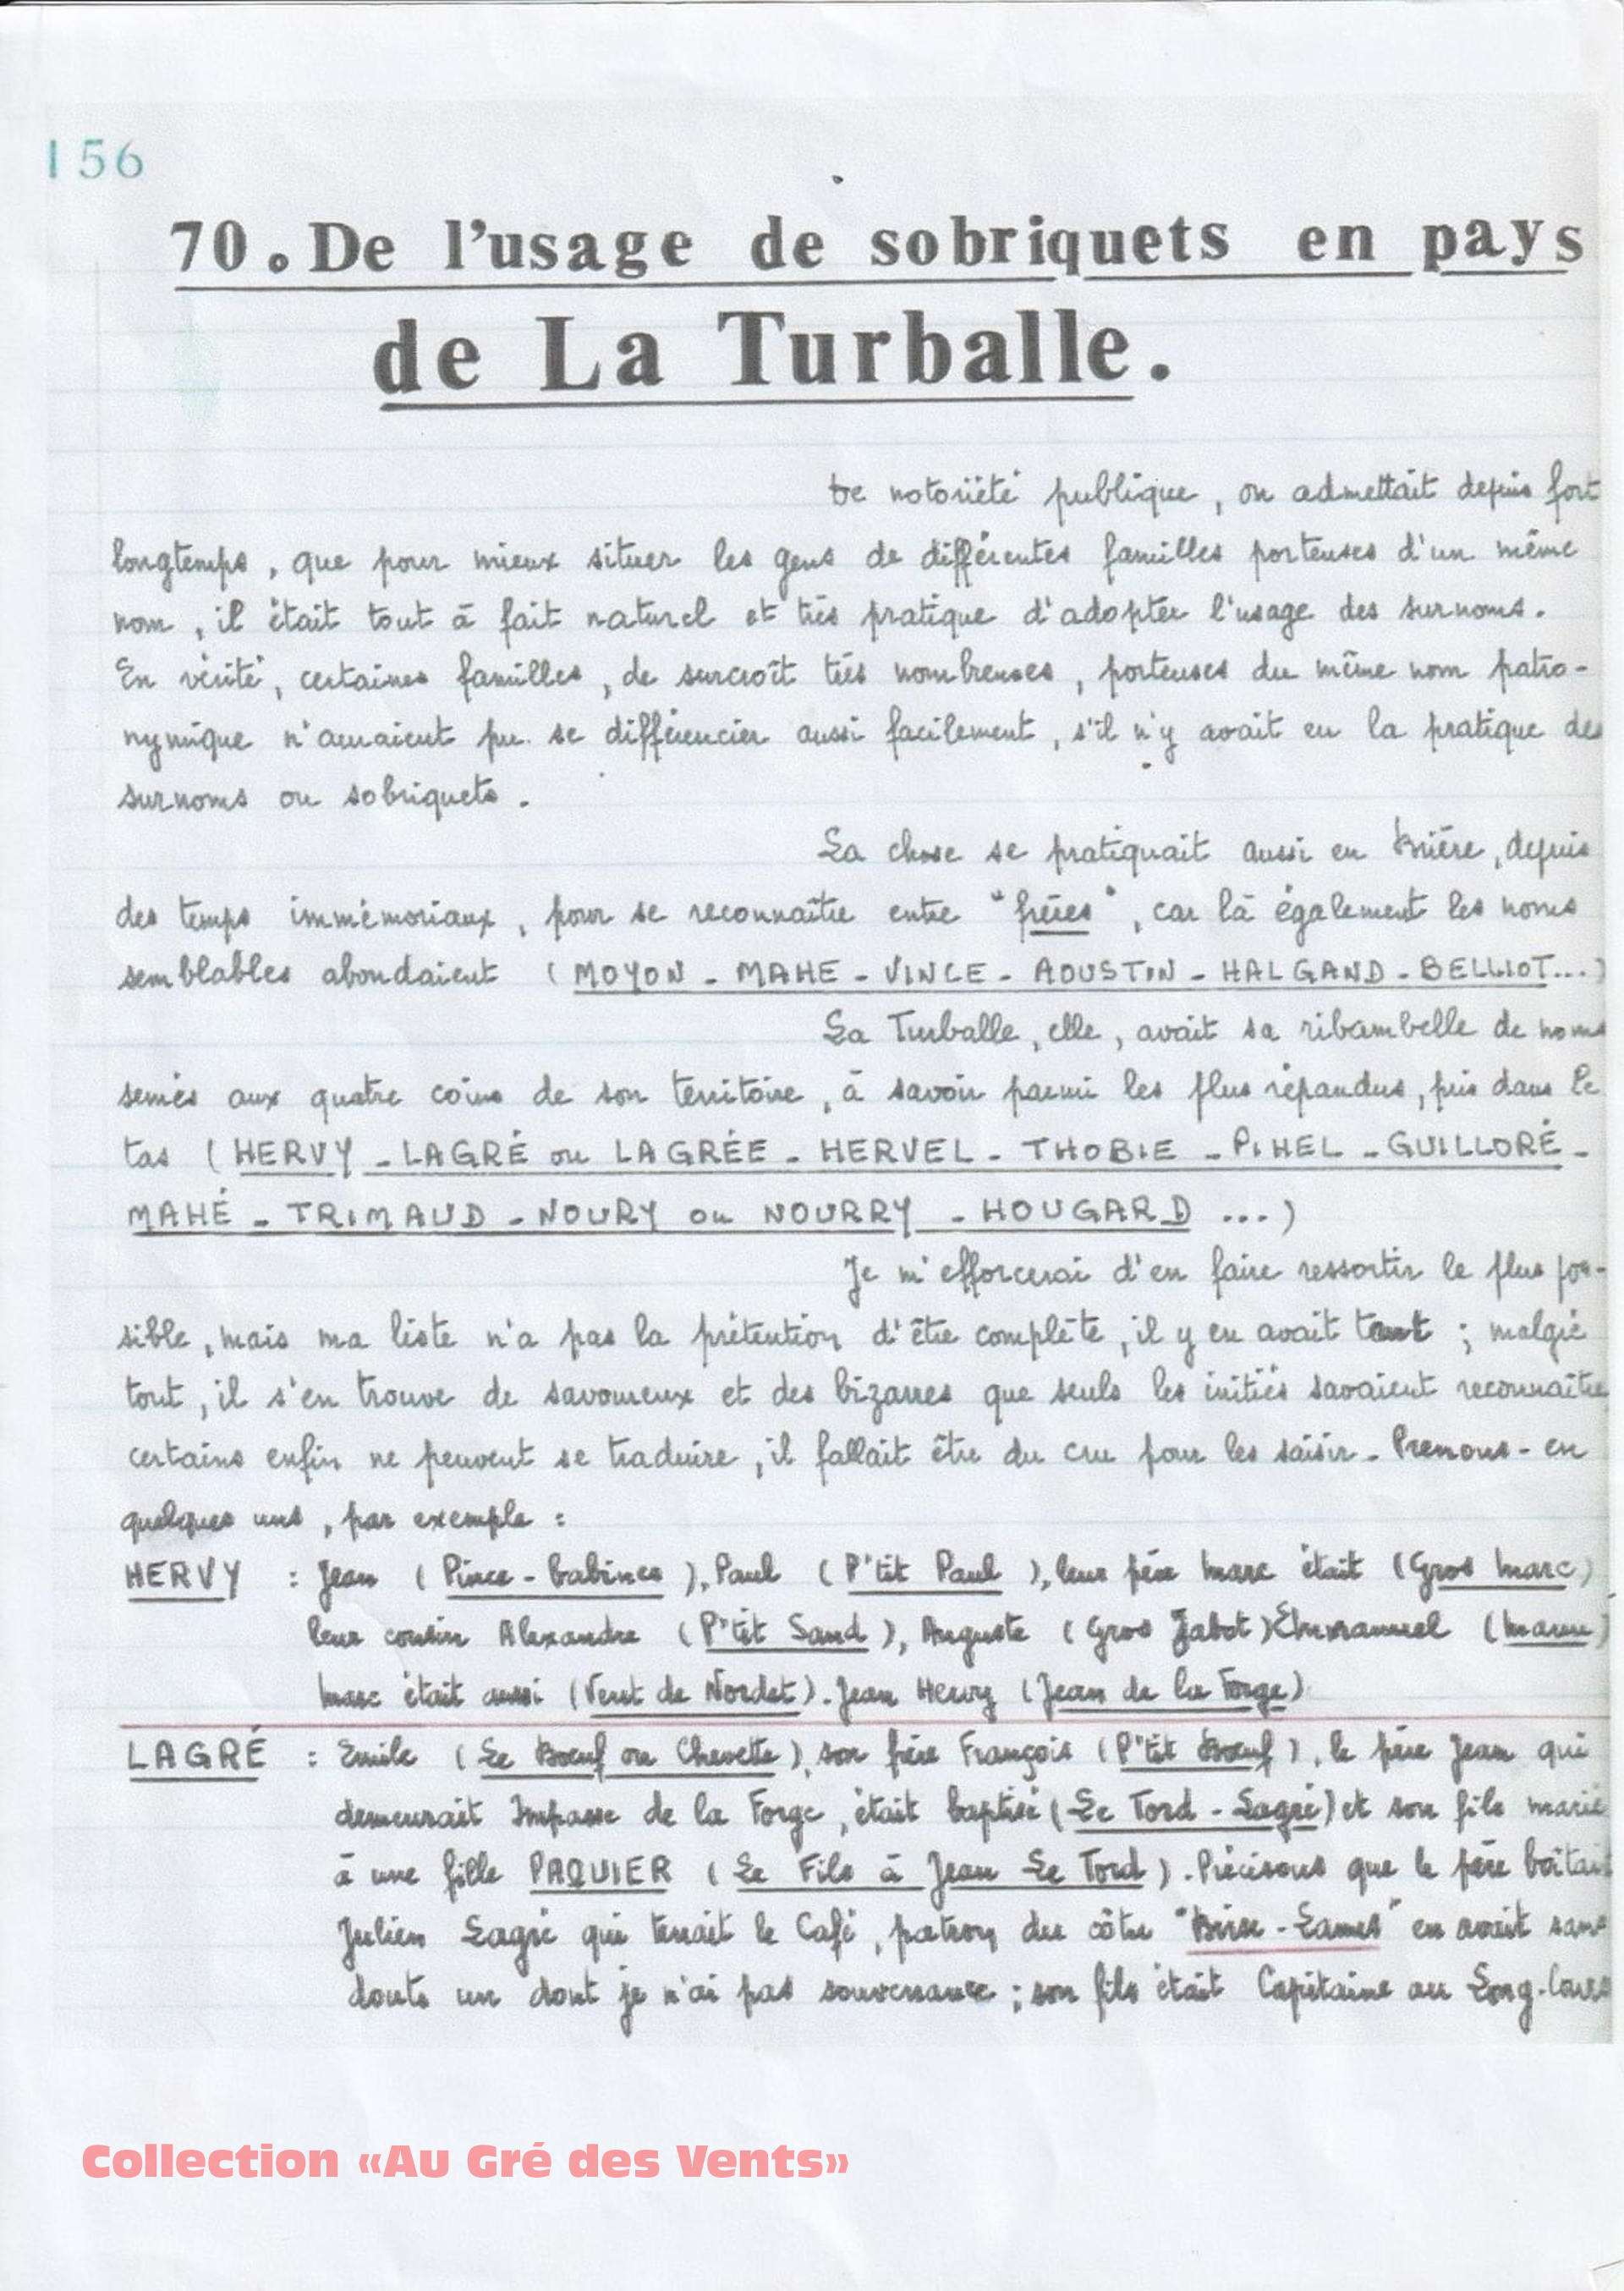 156
70. De l'usage de sobriquets en pays
de La Turballe.
De notoriété publique, on admettait depuis fort
longtemps, que pour mieux situer les gens de différentes familles porteuses d'un même
nom, il était tout à fait naturel et très pratique d'adopter l'usage des surnoms.
En vérité, certaines familles, de surcroît très nombreuses, porteuses du même nom patro-
nymique n'auraient pu se différencier aussi facilement, s'il n'y avait eu la pratique des
surnoms ou sobriquets.
La chose se pratiquait aussi en Brière, depuis
des temps immémoriaux, pour se reconnaître entre "frères", car là également les noms
semblables abondaient (MOYON - MAHE - VINCE - AOUSTIN - HALGAND - BELLIOT...)
La Turballe, elle, avait sa ribambelle de noms
semés aux quatre coins de son territoire, à savoir parmi les plus répandus, pris dans le
tas (HERVY - LAGRÉ ou LAGRÉE - HERVEL - THOBIE - PIHEL - GUILLORÉ -
MAHÉ - TRIMAUD - NOURY ou NOURRY - HOUGARD ...)
Je m'efforcerai d'en faire ressortir le plus pos-
sible, mais ma liste n'a pas la prétention d'être complète, il y en avait tant ; malgré
tout, il s'en trouve de savoureux et des bizarres que seuls les initiés savaient reconnaître
certains enfin ne peuvent se traduire, il fallait être du cru pour les saisir - Prenons-en
quelques uns, par exemple :
HERVY : Jean (Pince-babines), Paul (P'tit Paul), leur père Marc était (Gros Marc)
leur cousin Alexandre (P'tit Sand), Auguste (Gros Jabot) Emmanuel (Manu)
Marc était aussi (Vent de Nordet). Jean Hervy (Jean de la Forge)
LAGRÉ : Emile (Le Bœuf ou Chevette), son frère François (P'tit Bœuf), le père Jean qui
demeurait Impasse de la Forge, était baptisé (Le Tord-Lagré) et son fils marié
à une fille PAQUIER (Le Fils à Jean Le Tord). Précisons que le père boîtait
Julien Lagré qui tenait le Café, patron du côtre "Brise-Lames" en avait sans
doute un dont je n'ai pas souvenance ; son fils était Capitaine au Long-Cours
Collection «Au Gré des Vents»